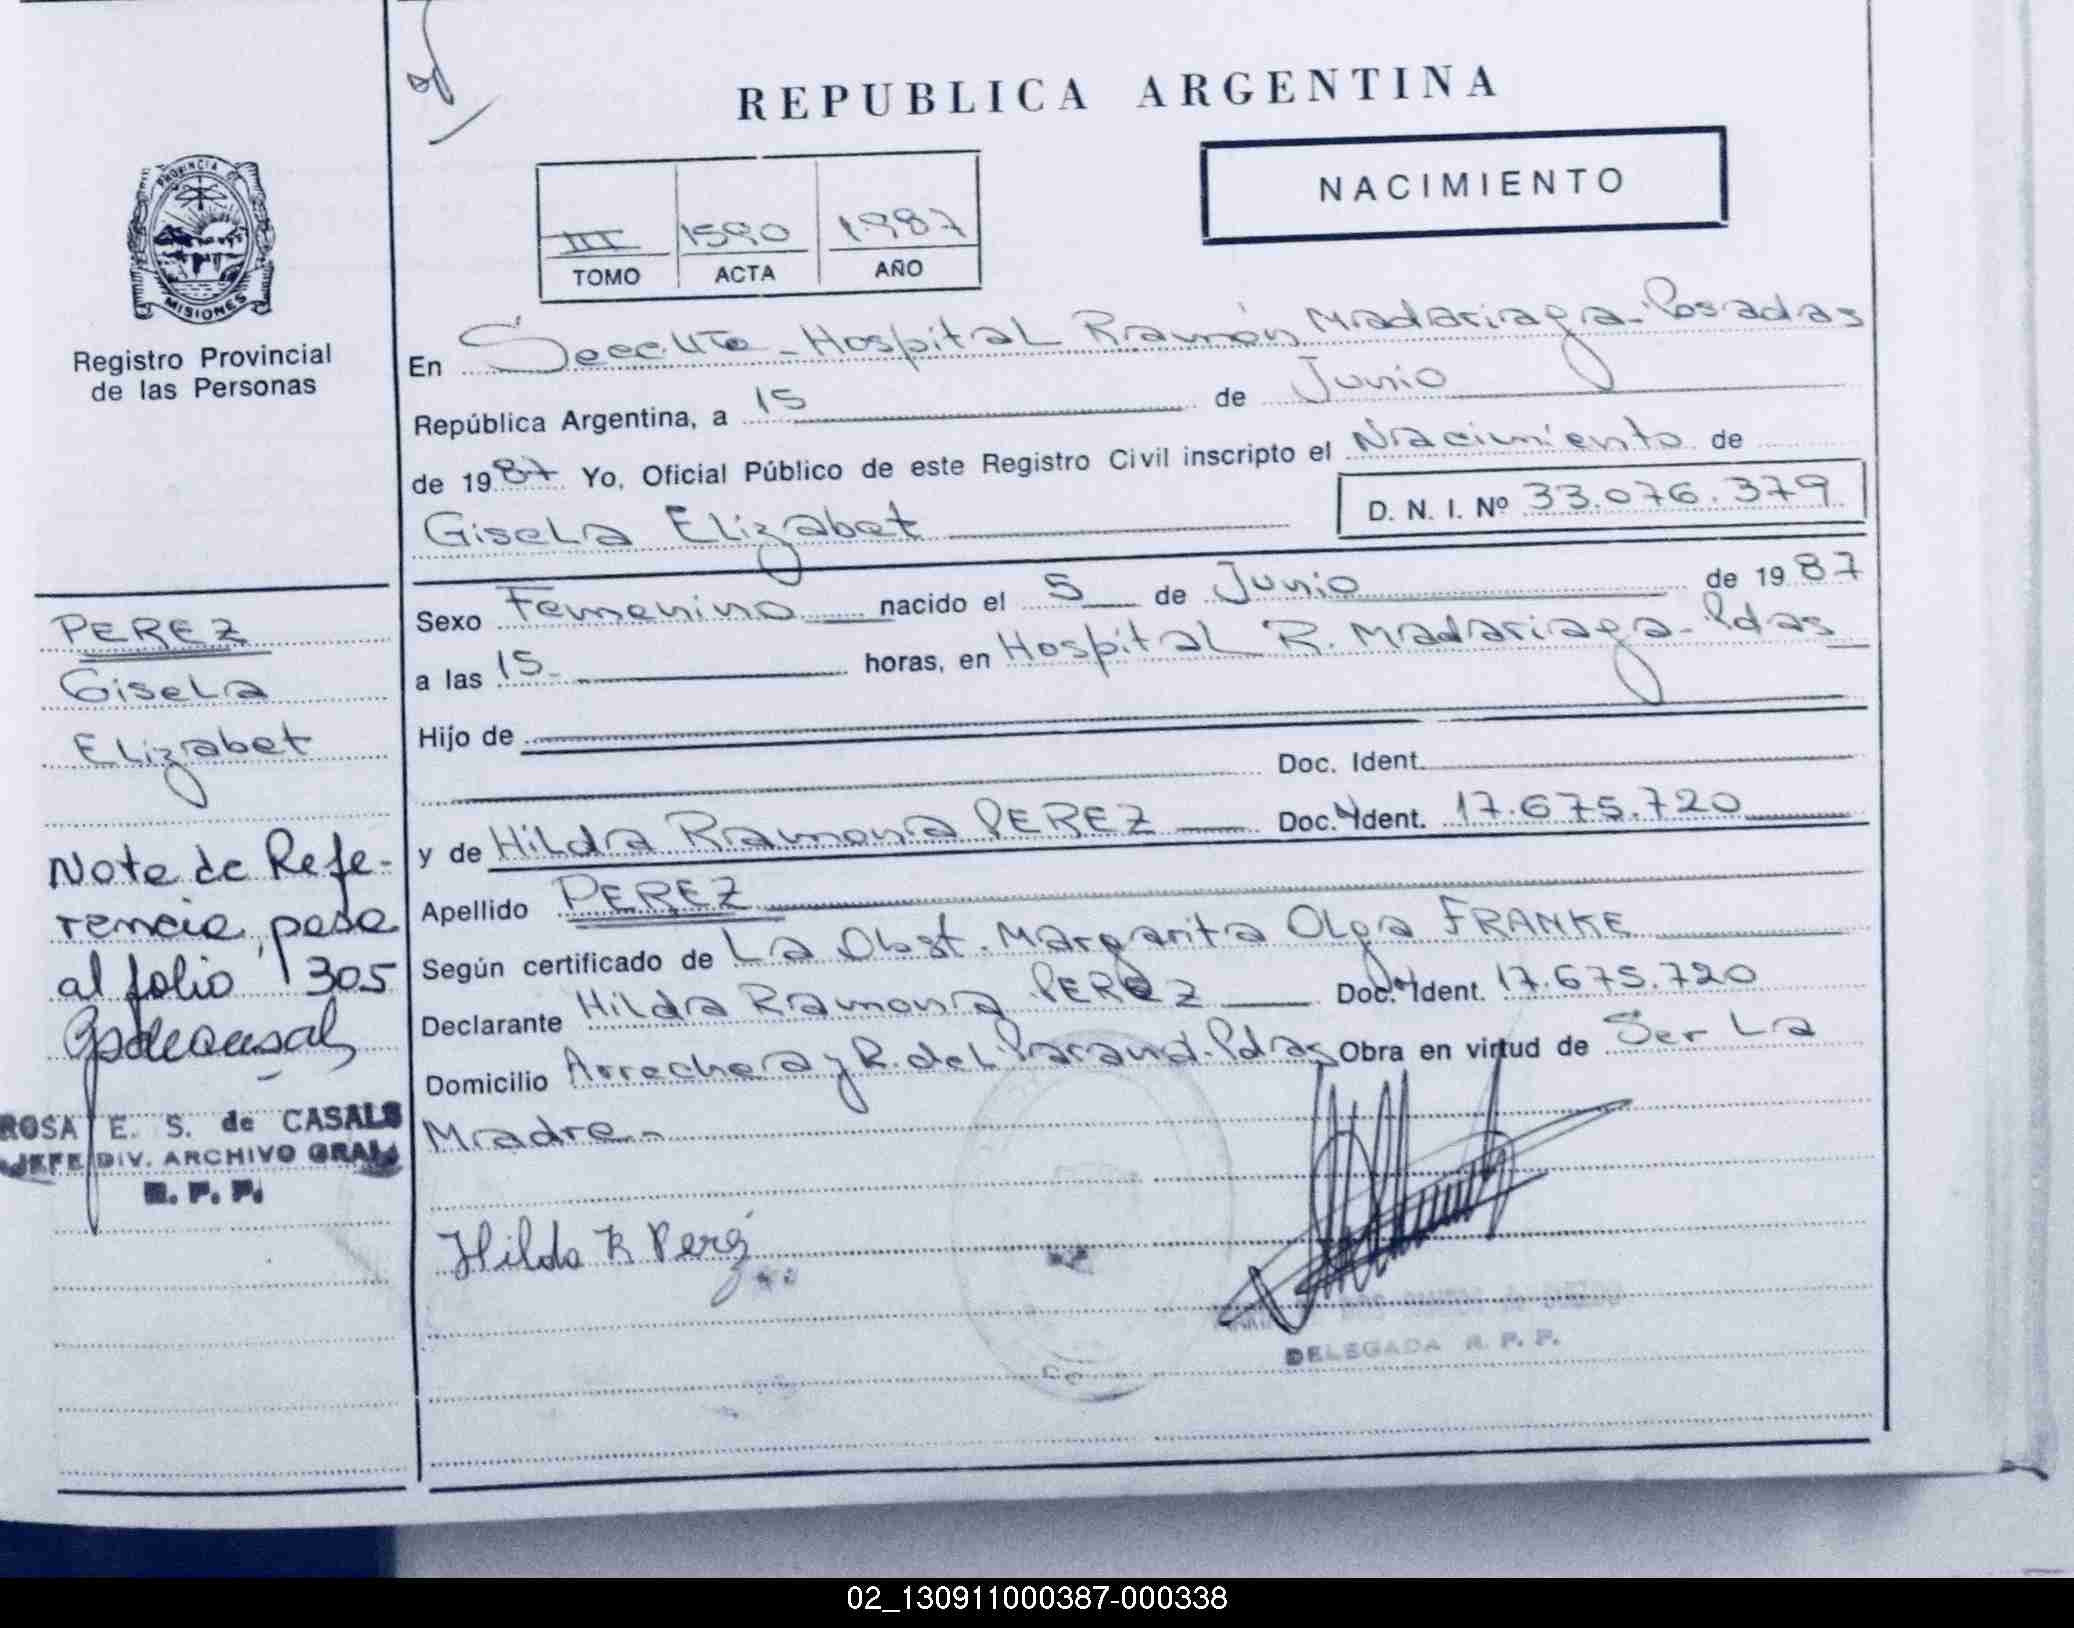 REPUBLICA ARGENTINA
NACIMIENTO
III 1590 1987
TOMO ACTA AÑO
PROVINCIA DE
MISIONES
Registro Provincial
de las Personas
En Hospital Ramón Madariaga - Posadas
República Argentina, a 15 de Junio
de 1987 Yo, Oficial Público de este Registro Civil inscripto el Nacimiento de
Gisela Elizabet D. N. I. Nº 33.076.379
Sexo Femenino nacido el 5 de Junio de 1987
a las 15 horas, en Hospital R. Madariaga - Pdas
Hijo de
Doc. Ident.
y de Hilda Ramona PEREZ Doc. Ident. 17.675.720
Apellido PEREZ
Según certificado de La Obst. Margarita Olga FRANKE
Declarante Hilda Ramona PEREZ Doc. Ident. 17.675.720
Domicilio Arrechea y R. del Paraná - Pdas Obra en virtud de Ser La
Madre.-
Hilda R Perez
DELEGADA R. P. P.
PEREZ
Gisela
Elizabet
Nota de Refe-
rencia, pasa
al folio 305
ROSA E. S. de CASALS
JEFE DIV. ARCHIVO GRAL
R. P. P.
02_130911000387-000338